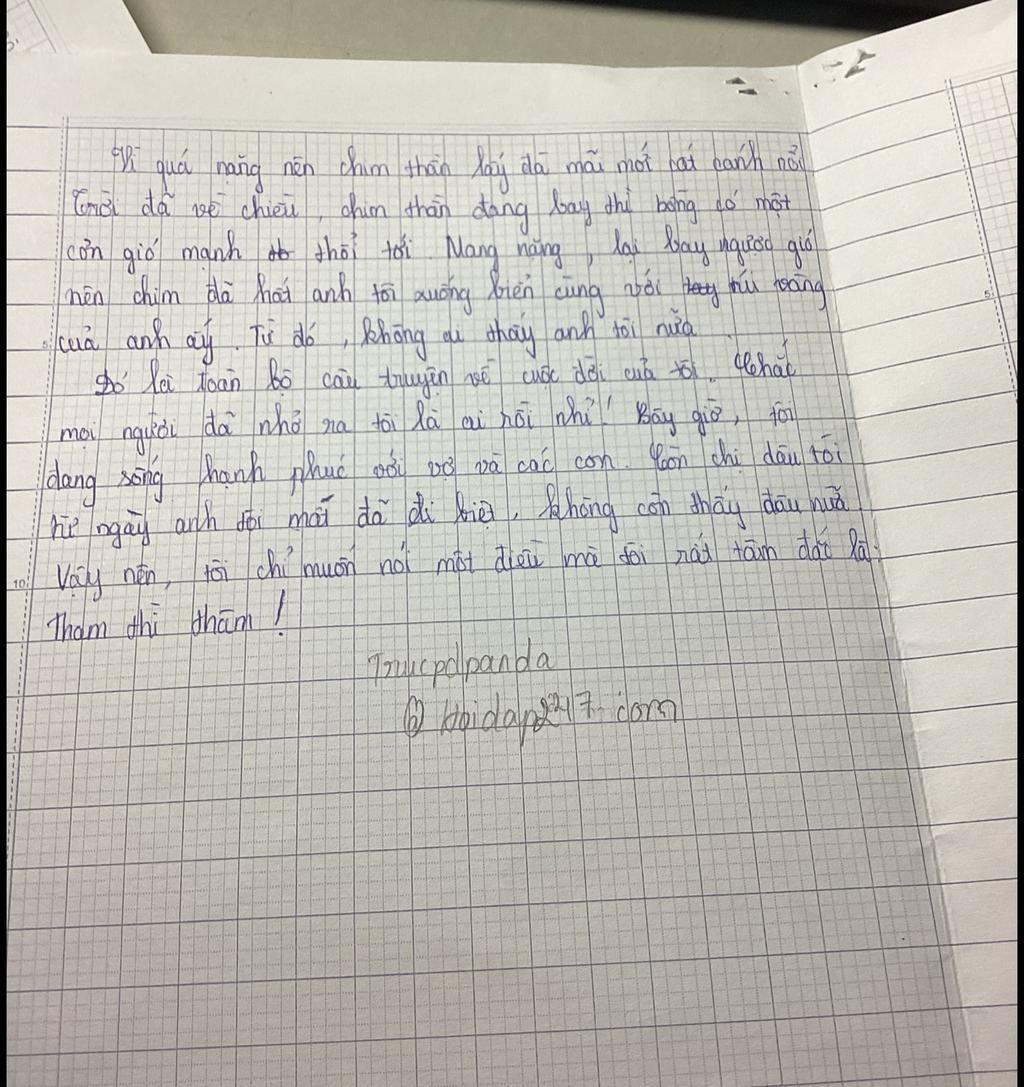 Vì quá nặng nên chim thần lấy đà mãi mới cất cánh nổi
Trời đã về chiều, chim thần đang bay thì bỗng có một
cơn gió mạnh thổi tới. Mang nặng, lại bay ngược gió
nên chim đã hất anh tôi xuống biển cùng với túi vàng
của anh ấy. Từ đó, không ai thấy anh tôi nữa
Đó là toàn bộ câu truyện về cuộc đời của tôi. Chắc
mọi người đã nhớ ra tôi là ai rồi nhỉ! Bây giờ, tôi
đang sống hạnh phúc với vợ và các con. Còn chị dâu tôi
từ ngày anh tôi mất đã đi biệt, không còn thấy đâu nữa
Vậy nên, tôi chỉ muốn nói một điều mà tôi rất tâm đắc là:
Tham thì thâm!
Trucpdpanda
@ Hoidap247.com